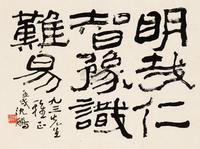 明哉仁
智豫識
難易
九三先生
正
沈鵬